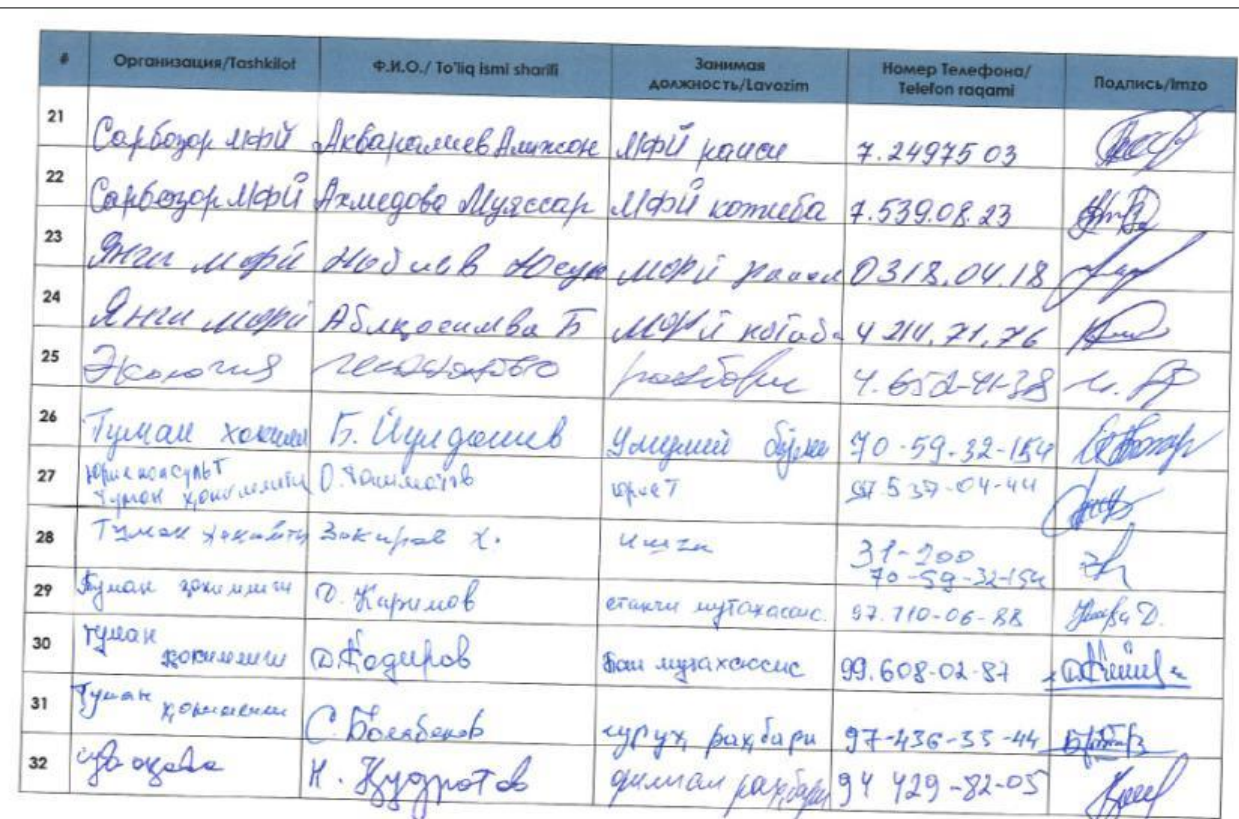 # Организация/Tashkilot Ф.И.О./ To'liq ismi sharifi Занимая должность/Lavozim Номер Телефона/ Telefon raqami Подпись/Imzo
21 Сарбозор МФЙ Акбаралиев Алижон МФЙ раиси 7.249 75 03
22 Сарбозор МФЙ Ахмедова Муяссар МФЙ котиба 7.539.08.23
23 Янги МФЙ Набиев МФЙ раиси 0318.04.18
24 Янги МФЙ Б МФЙ котиба 4 214.71.76
25 Экология 4.652-41-38
26 Туман Б. Йулдошев Умумий бўлим 70-59-32-154
27 Юрисконсульт туман ҳокимлиги О. Тошматов юрист 97.537-04-44
28 Туман Закиров Х. 31-200
70-59-32-154
29 Туман ҳокимлиги Д. Каримов етакчи мутахассис 97.710-06-88
30 туман ҳокимлиги Д. Қодиров Бош мутахассис 99.608-02-87
31 Туман ҳокимлиги С. гуруҳ раҳбари 97-436-33-44
32 Н. Қудратов филиал раҳбари 94 429-82-05